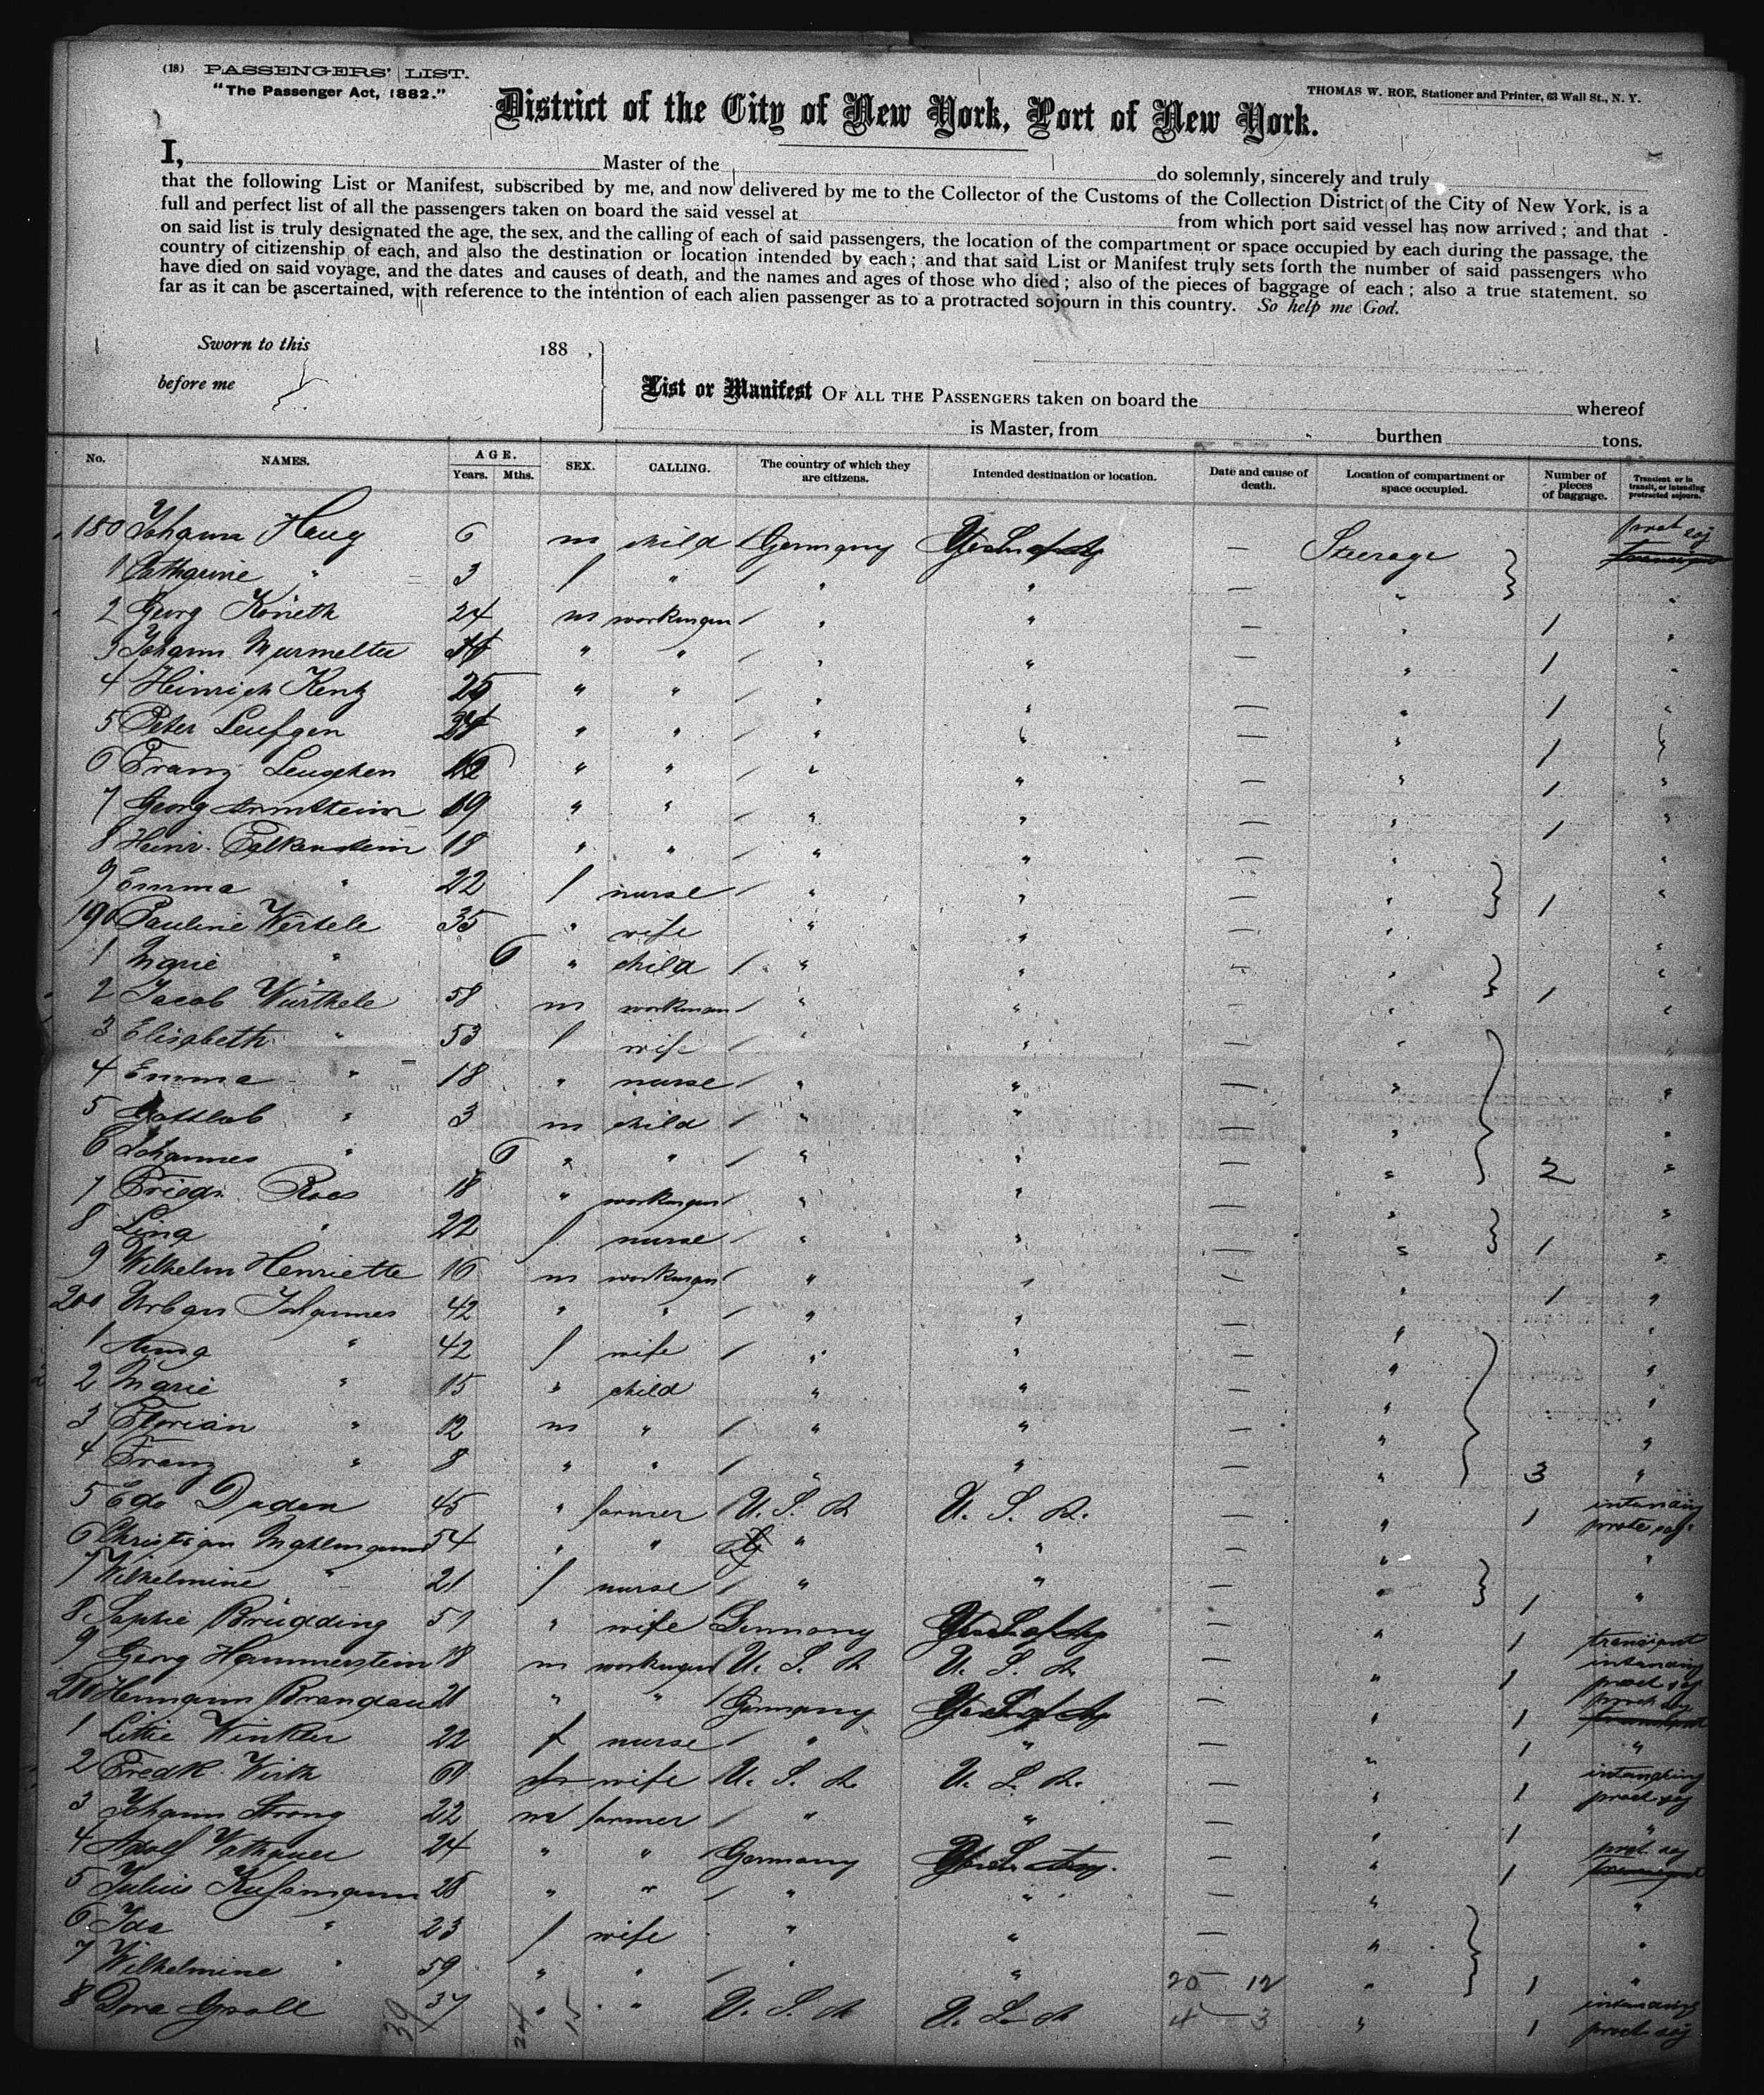 (18) PASSENGERS' LIST.
"The Passenger Act, 1882."
THOMAS W. ROE, Stationer and Printer, 63 Wall St., N. Y.
District of the City of New York, Port of New York.
I, Master of the do solemnly, sincerely and truly
that the following List or Manifest, subscribed by me, and now delivered by me to the Collector of the Customs of the Collection District of the City of New York, is a
full and perfect list of all the passengers taken on board the said vessel at from which port said vessel has now arrived; and that
on said list is truly designated the age, the sex, and the calling of each of said passengers, the location of the compartment or space occupied by each during the passage, the
country of citizenship of each, and also the destination or location intended by each; and that said List or Manifest truly sets forth the number of said passengers who
have died on said voyage, and the dates and causes of death, and the names and ages of those who died; also of the pieces of baggage of each; also a true statement, so
far as it can be ascertained, with reference to the intention of each alien passenger as to a protracted sojourn in this country. So help me God.
Sworn to this 188 ,
before me
List or Manifest OF ALL THE PASSENGERS taken on board the whereof
is Master, from burthen tons.
No. NAMES. AGE. Years. Mths. SEX. CALLING. The country of which they are citizens. Intended destination or location. Date and cause of death. Location of compartment or space occupied. Number of pieces of baggage. Transient or in transit, or intending protracted sojourn.
180 Johann Haug 6 m child / Germany — Steerage
1 Catharine " 3 f " / " " — "
2 Georg 24 m workman / " " — " 1 "
3 Johann Murmelter " " / " " — " 1 "
4 Heinrich Kentz 25 " " / " " — " 1 "
5 Peter Leufgen " " / " " — " 1 "
6 Franz " " / " " — " 1 "
7 Georg 19 " " / " " — " 1 "
8 Heinr. Falkenstein 18 " " / " " — " "
9 Emma " 22 f nurse / " " — " 1 "
190 Pauline 35 " wife " " — " "
1 Marie " 6 " child / " " — " 1 "
2 Jacob Würthele 58 m workman / " " — " "
3 Elisabeth " 53 f wife / " " — " "
4 Emma " 18 " nurse / " " — " "
5 Gottlob " 3 m child / " " — " "
6 Johannes " 6 " " / " " — " 2 "
7 Friedr. 18 " workman / " " — " "
8 Lina " 22 f nurse / " " — " 1 "
9 Wilhelm Henriette 16 m workman / " " — " 1 "
200 Urban Johannes 42 " " / " " — " "
1 Anna " 42 f wife / " " — " "
2 Marie " 15 " child " " — " "
3 Florian " 12 m " / " " — " "
4 Franz " 8 " " / " " — " 3 "
5 Edo 45 " farmer / U. S. A. U. S. A. — " 1 intending
6 Christian 54 " " " " — " "
7 Wilhelmine " 21 f nurse / " " — " 1 "
8 Sophie Brüdding " wife Germany — " 1 transient
9 Georg Hammerstein 18 m workman U. S. A. U. S. A. — " 1 intending
210 Hermann Brandau 21 " " / Germany — " 1
1 Winkler 22 f nurse / " " — " 1 "
2 Fredk. Wirth wife U. S. A. U. S. A. — " 1 intending
3 Johann Strong 22 m farmer / " " — " 1 "
4 Adolf 24 " " / Germany — " 1
5 Julius " " / " " — " "
6 Ida " 23 f wife " " — " "
7 Wilhelmine " 59 " " / " " 20 — 12 " 1 "
8 Dora 37 " " U. S. A. U. S. A. 4 — 3 " 1 intending
39 24 15